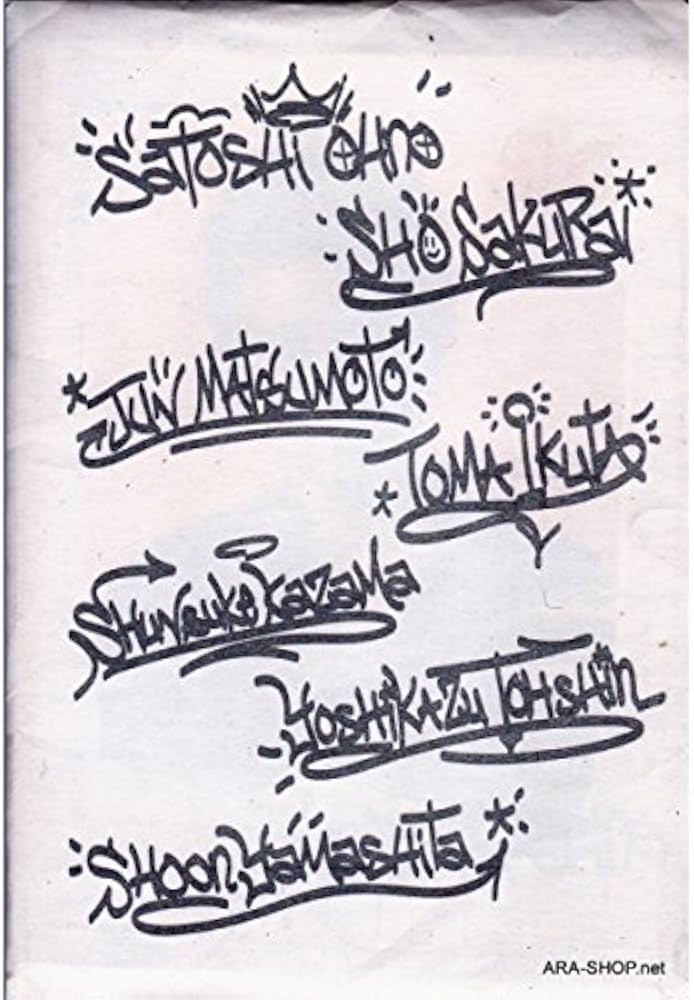 SaTOSHi OHnO
SHO SakuRai
JUN MATSUMOTO
TOMA IKUTA
SHUNsuke KazaMa
YOSHIKAZU TOHSHiN
SHOON YAMASHITA
ARA-SHOP.net